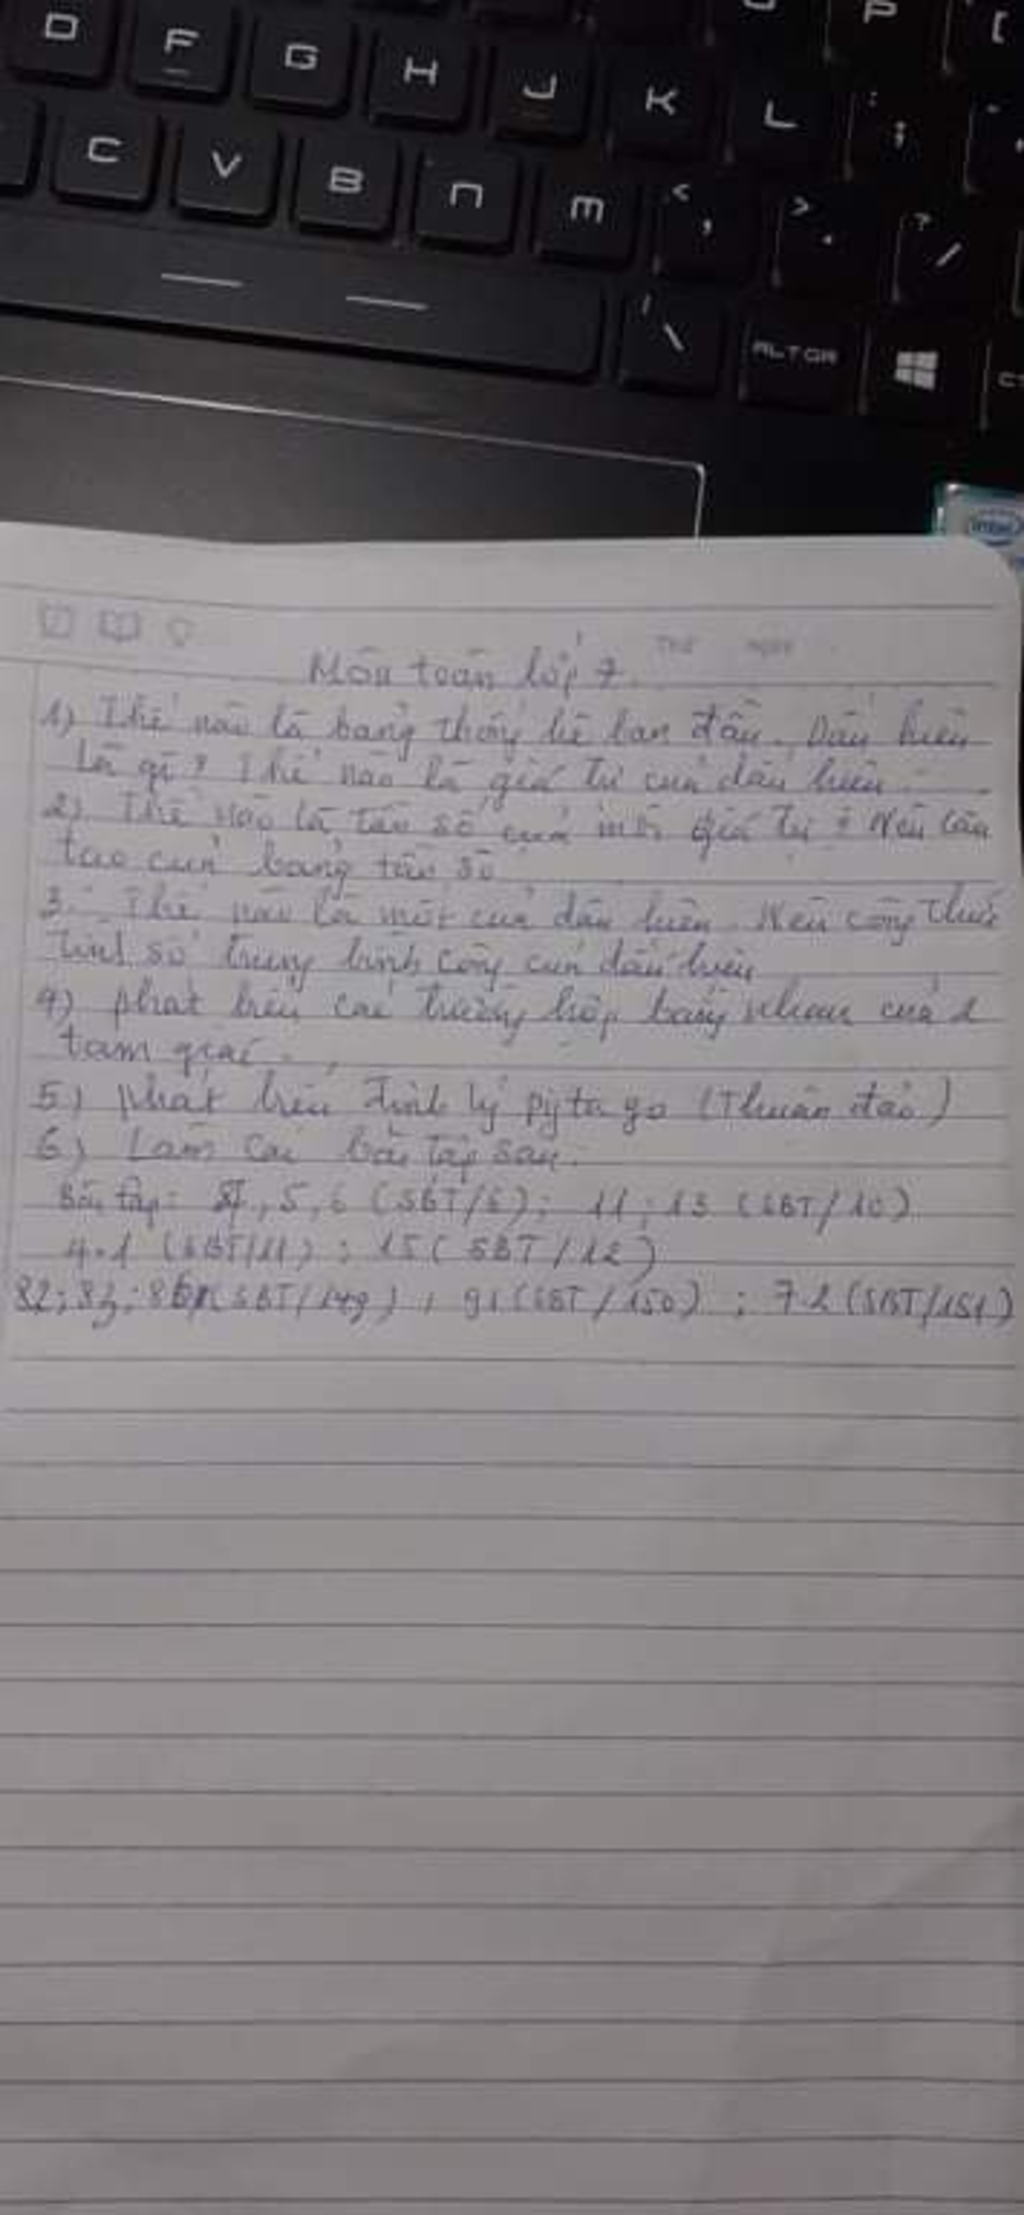 D F G H J K L : ; P [
C V B n m < , > . ? /
| \ ALTGR
intel
THỨ NGÀY
Môn toán lớp 7
1) Thế nào là bảng thống kê ban đầu. Dấu hiệu
là gì? Thế nào là giá trị của dấu hiệu.
2) Thế nào là tần số của mỗi giá trị? Nêu cấu
tạo của bảng tần số
3. Thế nào là mốt của dấu hiệu. Nêu công thức
tính số trung bình cộng của dấu hiệu
4) phát biểu các trường hợp bằng nhau của 2
tam giác.
5) phát biểu định lý pytago (Thuận đảo)
6) Làm các bài tập sau:
Bài tập: 5, 6 (SBT/6); 11; 13 (SBT/10)
4.1 (SBT/11); 15 (SBT/12)
82; 83; (SBT/149), 91 (SBT/150); 7.2 (SBT/151)